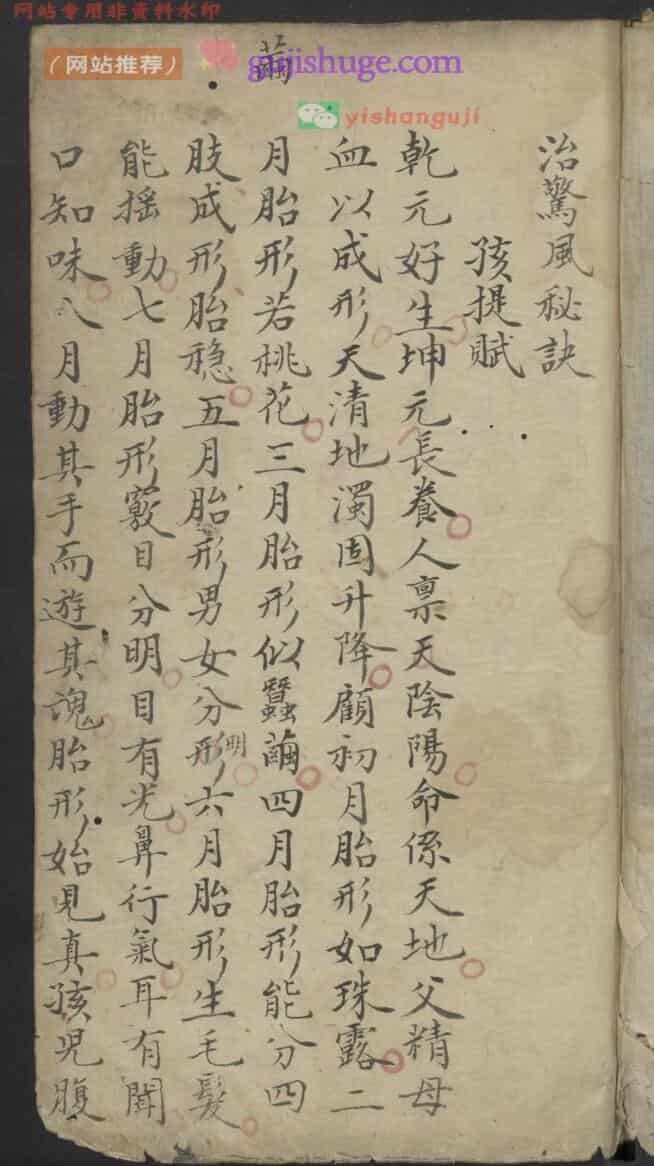 网站专用非资料水印
（网站推荐） gujishuge.com
yishanguji
繭
治驚風秘訣
孩提賦
乾元好生坤元長養人禀天陰陽命係天地父精母
血以成形天清地濁固升降顧初月胎形如珠露二
月胎形若桃花三月胎形似蠶繭四月胎形能分四
肢成形胎穩五月胎形男女分形明六月胎形生毛髮
能揺動七月胎形竅目分明目有光鼻行氣耳有聞
口知味八月動其手而遊其魂胎形始見真孩児腹